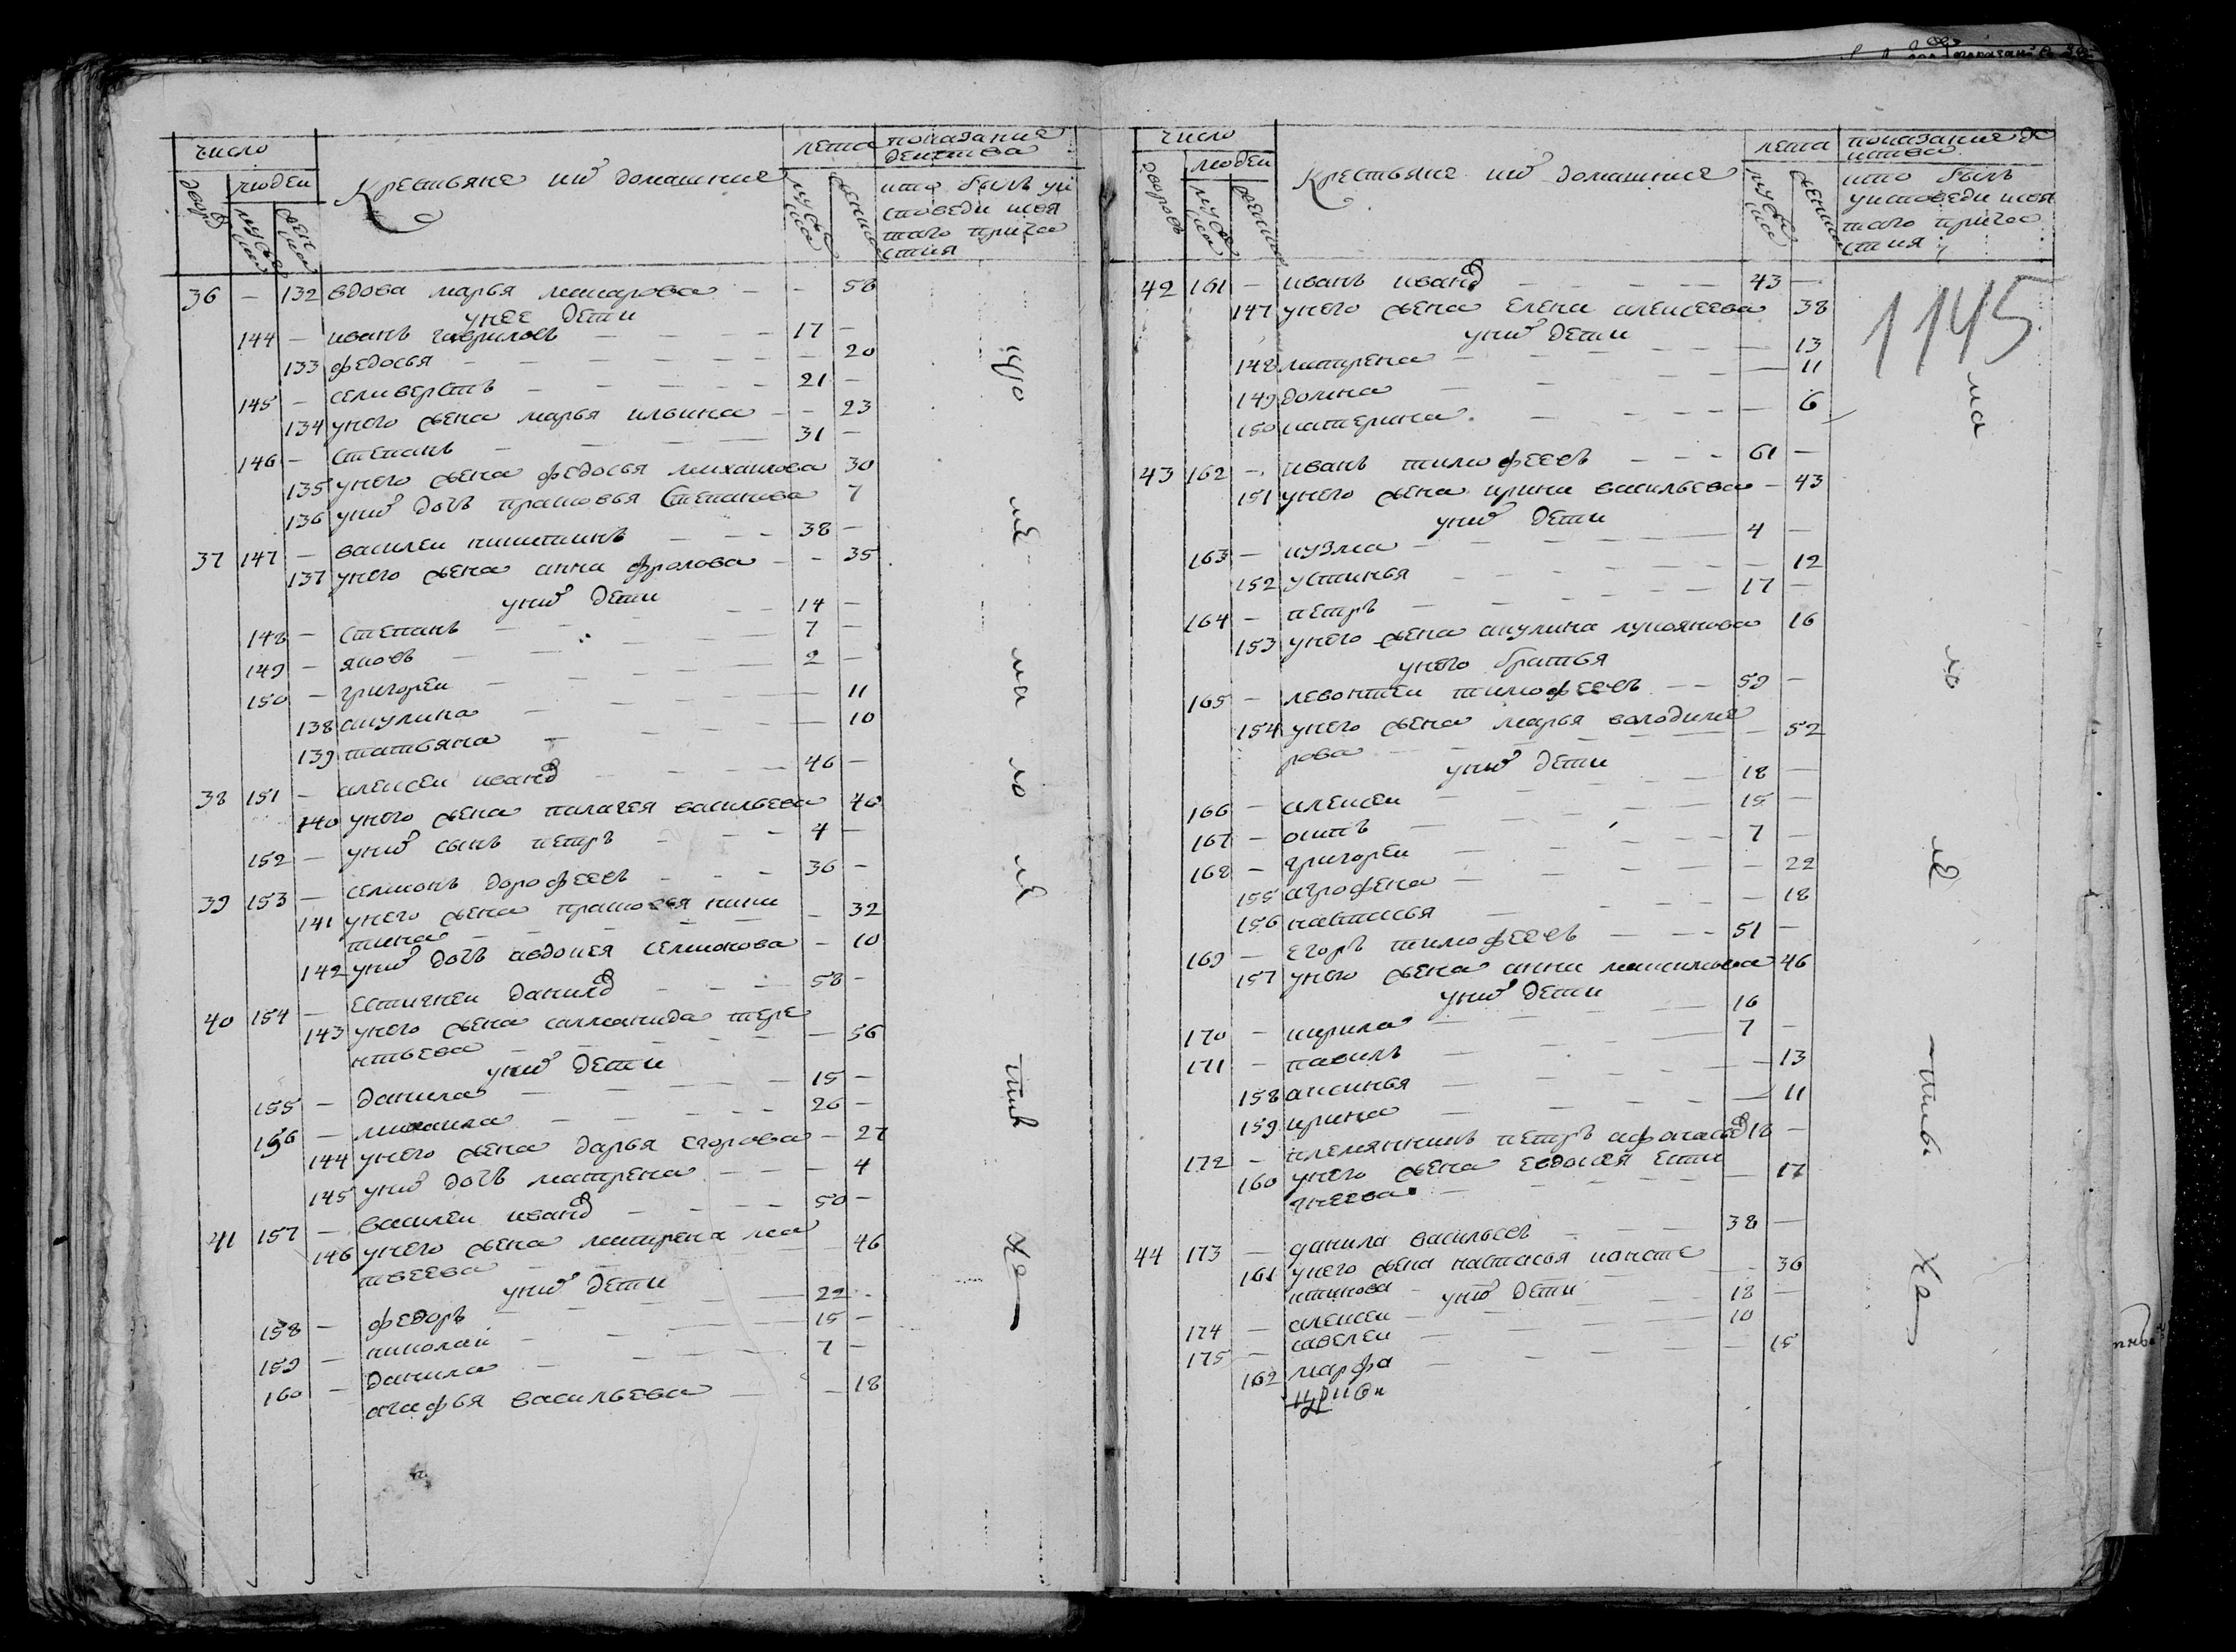 число
людеи
дворовъ
мужеска
женска
Крестьяне ихъ домашние
лета
мужеска
женска
показание
деиства
кто былъ уи
споведи исвя
таго прича
стия
36 – 132 вдова марья макарова – – 58
унее дети
144 – иванъ гавриловъ – 17 –
133 федосья – – 20
145 – селиверстъ – 21 –
134 унего жена марья ильина – – 23
146 – степанъ – 31 –
135 унего жена федосья михаилова 30
136 унихъ дочь прасковья степанова 7
37 147 – василеи никитинъ – 38 –
137 унего жена анна фролова – – 35
унихъ дети
148 – степанъ – 14 –
149 – яковъ – 7 –
150 – григореи – 2 –
138 акулина – – 11
139 татьяна – – 10
38 151 – алексеи ивановъ – 46 –
140 унего жена палагея васильева 40
152 – унихъ сынъ петръ – 4 –
39 153 – семионъ дорофеевъ – 36 –
141 унего жена прасковья ники
тина – – 32
142 унихъ дочь авдокея семионова – 10
40 154 – естигнеи даниловъ – 58 –
143 унего жена саламанида тере
нтьева – – 56
унихъ дети
155 – данила – 15 –
156 – михаила – 26 –
144 унего жена дарья егорова – 27
145 унихъ дочь матрена – – 4
41 157 – василеи ивановъ – 50 –
146 унего жена матрена ма
твеева – – 46
унихъ дети
158 – федоръ – 22 –
159 – николаи – 15 –
160 – данила – 7 –
агафья васильева – – 18
число
людеи
дворовъ
мужеска
женска
Крестьяне ихъ домашние
лета
мужеска
женска
показание де
иства
кто былъ
уисповеди исвя
таго прича
стия
1145
42 161 – иванъ ивановъ – 43 –
147 унего жена елена алексеева 38
унихъ дети
148 матрена – – 13
149 домна – – 11
150 катерина – – 6
43 162 – иванъ тимофеевъ – 61 –
151 унего жена ирина васильева – 43
унихъ дети
163 – кузма – 4 –
152 устинья – – 12
164 – петръ – 17 –
153 унего жена акулина лукоянова 16
унего братья
165 – левонтеи тимофеевъ – 59 –
154 унего жена марья володиме
рова – – 52
унихъ дети
166 – алексеи – 18 –
167 – осипъ – 15 –
168 – григореи – 7 –
155 агрофена – – 22
156 настасья – – 18
169 – егоръ тимофеевъ – 51 –
157 унего жена анна максимова 46
унихъ дети
170 – кирила – 16
171 – павилъ – 7 –
158 аксинья – – 13
159 ирина – – 11
172 – племянникъ петръ афонасьевъ 18 –
160 унего жена евдокея ести
гнеева – – 17
44 173 – данила васильевъ – 38 –
161 унего жена настасья консте
нтинова – 36
унихъ дети
174 – алексеи – 18 –
175 – савелеи – 10
162 марфа – – 15